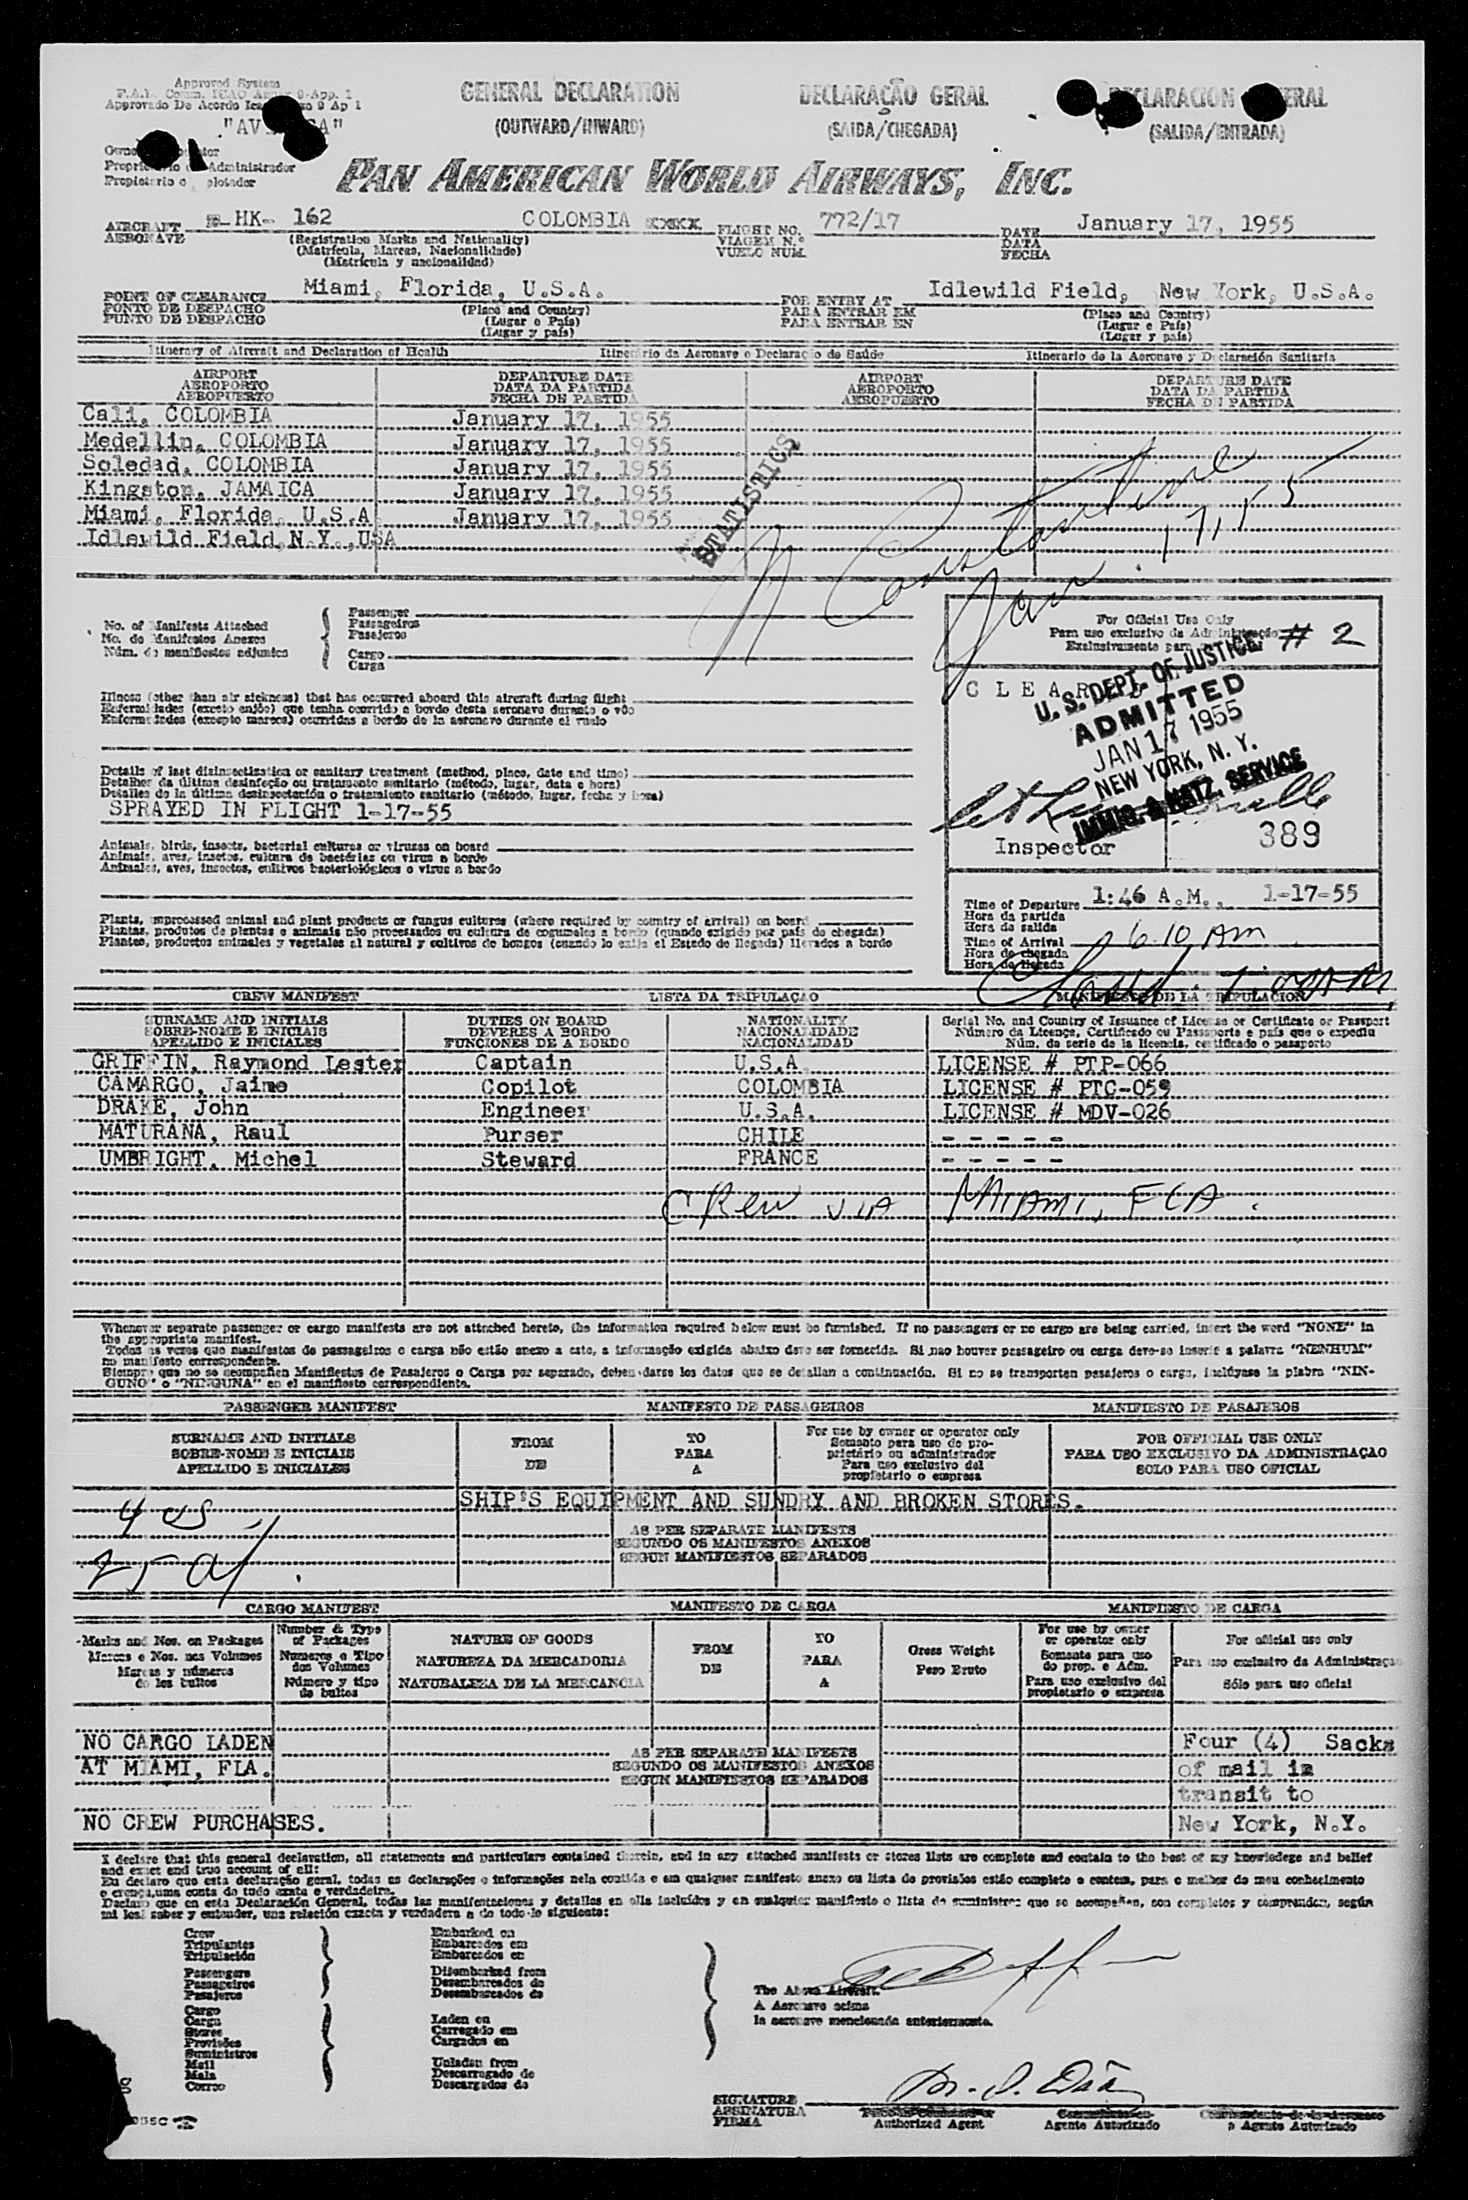 Approved System
"AV
GENERAL DECLARATION
(OUTWARD/INWARD)
DECLARAÇÃO GERAL
(SAIDA/CHEGADA)
(SALIDA/ENTRADA)
PAN AMERICAN WORLD AIRWAYS, INC.
AIRCRAFT HK- 162 COLOMBIA XXXX FLIGHT NO. 772/17 DATE January 17, 1955
AERONAVE (Registration Marks and Nationality) VIAGEM N.º DATA
(Matrícula, Marcas, Nacionalidade) VUELO NUM. FECHA
(Matrícula y nacionalidad)
POINT OF CLEARANCE Miami, Florida, U.S.A. FOR ENTRY AT Idlewild Field, New York, U.S.A.
PONTO DE DESPACHO (Place and Country) PARA ENTRAR EM (Place and Country)
PUNTO DE DESPACHO (Lugar e País) PARA ENTRAR EN (Lugar e País)
(Lugar y país) (Lugar y país)
Itinerary of Aircraft and Declaration of Health Itinerário da Aeronave e Declaração de Saúde Itinerario de la Aeronave y Declaración Sanitaria
AIRPORT DEPARTURE DATE AIRPORT DEPARTURE DATE
AEROPORTO DATA DA PARTIDA AEROPORTO DATA DA PARTIDA
AEROPUERTO FECHA DE PARTIDA AEROPUERTO FECHA DE PARTIDA
Cali, COLOMBIA January 17, 1955
Medellin, COLOMBIA January 17, 1955
Soledad, COLOMBIA January 17, 1955
Kingston, JAMAICA January 17, 1955
Miami, Florida, U.S.A January 17, 1955
Idlewild Field,N.Y.,USA
STATISTICS
Constantine
Jan. 17, 55
No. of Manifests Attached
No. de Manifestos Anexos
Núm. de manifiestos adjuntos
Passenger
Passageiros
Pasajeros
Cargo
Carga
For Official Use Only
Para uso exclusivo da Administração
# 2
Illness (other than air sickness) that has occurred aboard this aircraft during flight
Enfermidades (exceto enjôo) que tenha ocorrido a bordo desta aeronave durante o vôo
Enfermedades (excepto mareos) ocurridas a bordo de la aeronave durante el vuelo
U. S. DEPT. OF JUSTICE
ADMITTED
JAN 17 1955
NEW YORK, N. Y.
IMMIG. & NATZ. SERVICE
Details of last disinsectization or sanitary treatment (method, place, date and time)
Detalhes da última desinfeção ou tratamento sanitario (método, lugar, data e hora)
Detalles de la última desinsectación o tratamiento sanitario (método, lugar, fecha y hora)
SPRAYED IN FLIGHT 1-17-55
Inspector 389
Animals, birds, insects, bacterial cultures or viruses on board
Animais, aves, insetos, cultura de bactérias ou virus a bordo
Animales, aves, insectos, cultivos bacteriológicos o virus a bordo
Time of Departure 1:46 A.M., 1-17-55
Hora da partida
Hora de salida
Time of Arrival 6.10 AM
Hora de chegada
Hora de llegada
Plants, unprocessed animal and plant products or fungus cultures (where required by country of arrival) on board
Plantas, produtos de plantas e animais não processados ou cultura de cogumelos a bordo (quando exigido por país de chegada)
Plantas, productos animales y vegetales al natural y cultivos de hongos (cuando lo exija el Estado de llegada) llevados a bordo
CREW MANIFEST LISTA DA TRIPULAÇAO MANIFIESTO DE LA TRIPULACION
SURNAME AND INITIALS DUTIES ON BOARD NATIONALITY Serial No. and Country of Issuance of License or Certificate or Passport
SOBRE-NOME E INICIAIS DEVERES A BORDO NACIONALIDADE Número da Licença, Certificado ou Passaporte e país que o expediu
APELLIDO E INICIALES FUNCIONES DE A BORDO NACIONALIDAD Núm. de serie de la licencia, certificado o pasaporte
GRIFFIN, Raymond Lester Captain U.S.A. LICENSE # PTP-066
CAMARGO, Jaime Copilot COLOMBIA LICENSE # PTC-059
DRAKE, John Engineer U.S.A. LICENSE # MDV-026
MATURANA, Raul Purser CHILE - - - - -
UMBRIGHT, Michel Steward FRANCE - - - - -
CREW VIA MIAMI, FLA.
Whenever separate passenger or cargo manifests are not attached hereto, the information required below must be furnished. If no passengers or no cargo are being carried, insert the word "NONE" in
the appropriate manifest.
Todas as vezes que manifestos de passageiros o carga não estão anexo a este, a informação exigida abaixo deve ser fornecida. Si nao houver passageiro ou carga deve-se inserir a palavra "NENHUM"
no manifesto correspondente.
Siempre que no se acompañen Manifiestos de Pasajeros o Carga por separado, deben darse los datos que se detallan a continuación. Si no se transporten pasajeros o carga, inclúyase la plabra "NIN-
GUNO" o "NINGUNA" en el manifiesto correspondiente.
PASSENGER MANIFEST MANIFESTO DE PASSAGEIROS MANIFIESTO DE PASAJEROS
SURNAME AND INITIALS FROM TO For use by owner or operator only FOR OFFICIAL USE ONLY
SOBRE-NOME E INICIAIS DE PARA Somente para uso do pro- PARA USO EXCLUSIVO DA ADMINISTRAÇAO
APELLIDO E INICIALES A prietário ou administrador SOLO PARA USO OFICIAL
Para uso exclusivo del
propietario o empresa
SHIP'S EQUIPMENT AND SUNDRY AND BROKEN STORES.
4 us
25 al
AS PER SEPARATE MANIFESTS
SEGUNDO OS MANIFESTOS ANEXOS
SEGUN MANIFIESTOS SEPARADOS
CARGO MANIFEST MANIFESTO DE CARGA MANIFIESTO DE CARGA
Marks and Nos. on Packages Number & Type of Packages NATURE OF GOODS FROM TO Gross Weight For use by owner or operator only For official use only
Marcas e Nos. nos Volumes Numeros e Tipo dos Volumes NATUREZA DA MERCADORIA DE PARA Peso Bruto Somente para uso do prop. e Adm. Para uso exclusivo da Administraçao
Marcas y números de los bultos Número y tipo de bultos NATURALEZA DE LA MERCANCIA A Para uso exclusivo del propietario o empresa Sólo para uso oficial
NO CARGO LADEN Four (4) Sacks
AT MIAMI, FLA. of mail in
transit to
NO CREW PURCHASES. New York, N.Y.
AS PER SEPARATE MANIFESTS
SEGUNDO OS MANIFESTOS ANEXOS
SEGUN MANIFIESTOS SEPARADOS
I declare that this general declaration, all statements and particulars contained therein, and in any attached manifests or stores lists are complete and contain to the best of my knowledege and belief
and exact and true account of all:
Eu declaro que esta declaração geral, todas as declarações e informações nela contida e em qualquer manifesto anexo ou lista de provisões estão completo e contem, para o melhor de meu conhecimento
e crença,uma conta de todo exata e verdadeira.
Declaro que en esta Declaración General, todas las manifestaciones y detalles en ella incluidos y en cualquier manifiesto o lista de suministros que se acompañen, son completos y comprenden, según
mi leal saber y entender, una relación exacta y verdadera a de todo lo siguiente:
Crew
Tripulantes
Tripulación
Passengers
Passageiros
Pasajeros
Cargo
Carga
Stores
Provisões
Suministros
Mail
Mala
Correo
Embarked on
Embarcados em
Embarcados en
Disembarked from
Desembarcados de
Desembarcados de
Laden on
Carregado em
Cargados en
Unladen from
Descarregado de
Descargados de
The Above Aircraft.
A Aeronave acima
la aeronave mencionada anteriormente.
SIGNATURE
ASSINATURA
FIRMA
Authorized Agent Agente Autorizado o Agente Autorizado